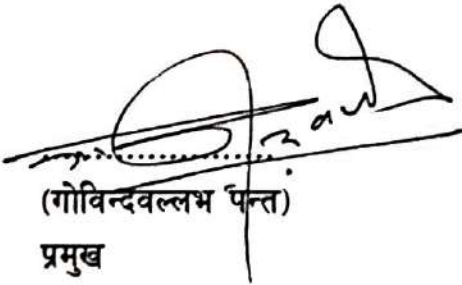 (गोविन्दवल्लभ पन्त)
प्रमुख